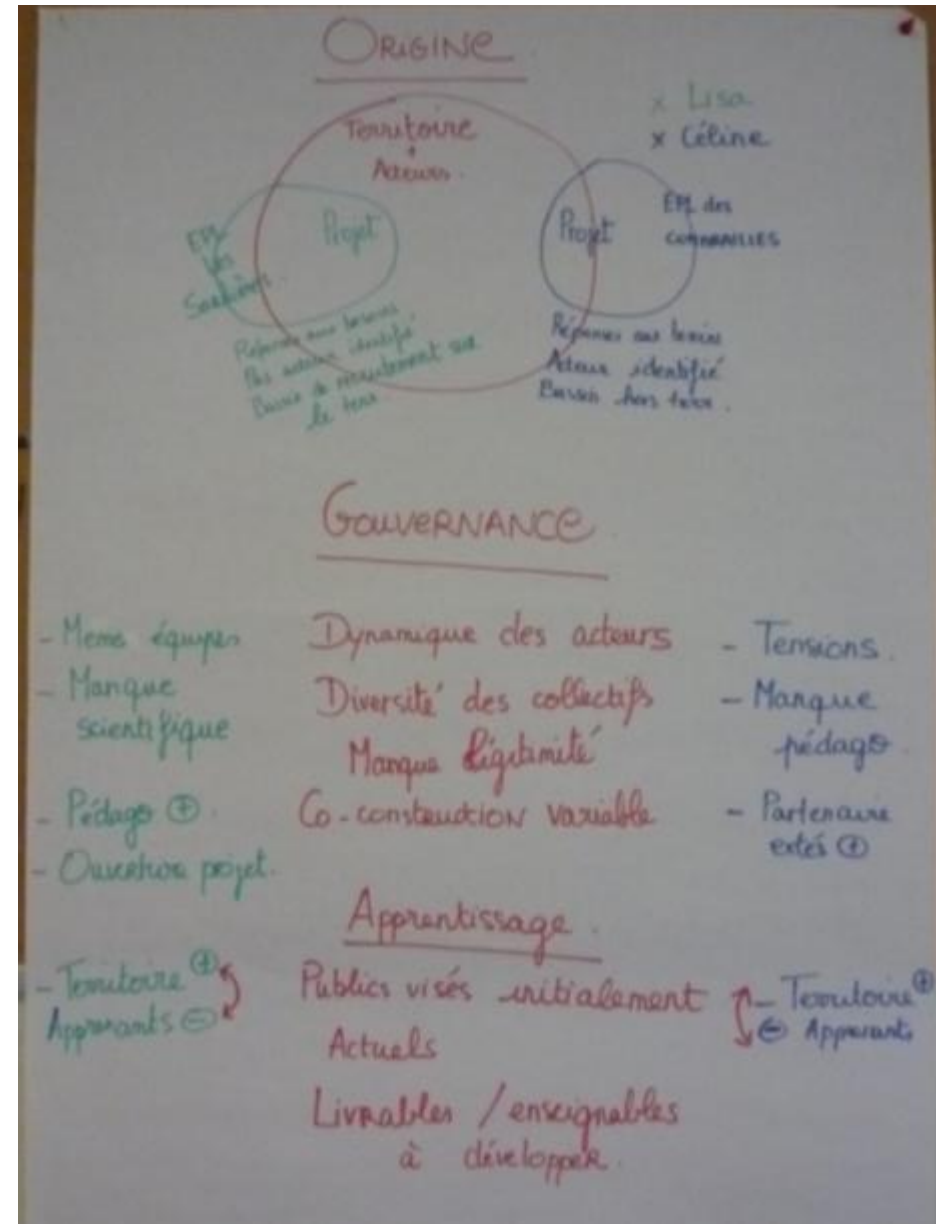 ORIGINE
x Lisa
x Céline
Territoire
+
Acteurs.
EPL
les
Projet
Projet
EPL des
COMBRAILLES
Réponses aux besoins
Pas acteur identifié
Bassin de recrutement sur
le terr
Réponses aux besoins
Acteur identifié
Bassin hors terr.
GOUVERNANCE
- Meme équipes
- Manque
scientifique
- Pédago ⊕.
- Ouverture projet.
Dynamique des acteurs
Diversité des collectifs
Manque légitimité
Co-construction variable
- Tensions.
- Manque
pédago.
- Partenaire
extés ⊕
Apprentissage.
- Territoire ⊕
Apprenants ⊖
Publics visés initialement
Actuels
Livrables / enseignables
à développer.
- Territoire ⊕
⊖ Apprenants